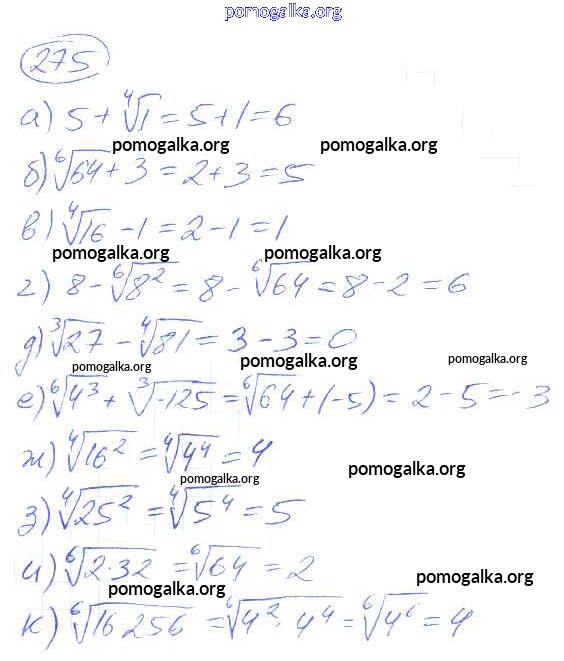 pomogalka.org
275
а) 5 + ⁴√1 = 5 + 1 = 6
pomogalka.org pomogalka.org
б) ⁶√64 + 3 = 2 + 3 = 5
в) ⁴√16 - 1 = 2 - 1 = 1
pomogalka.org pomogalka.org
г) 8 - ⁶√8² = 8 - ⁶√64 = 8 - 2 = 6
д) ³√27 - ⁴√81 = 3 - 3 = 0
pomogalka.org pomogalka.org pomogalka.org
е) ⁶√4³ + ³√-125 = ⁶√64 + (-5) = 2 - 5 = -3
ж) ⁴√16² = ⁴√4⁴ = 4
pomogalka.org pomogalka.org
з) ⁴√25² = ⁴√5⁴ = 5
и) ⁶√2·32 = ⁶√64 = 2
pomogalka.org pomogalka.org
к) ⁶√16·256 = ⁶√4²·4⁴ = ⁶√4⁶ = 4